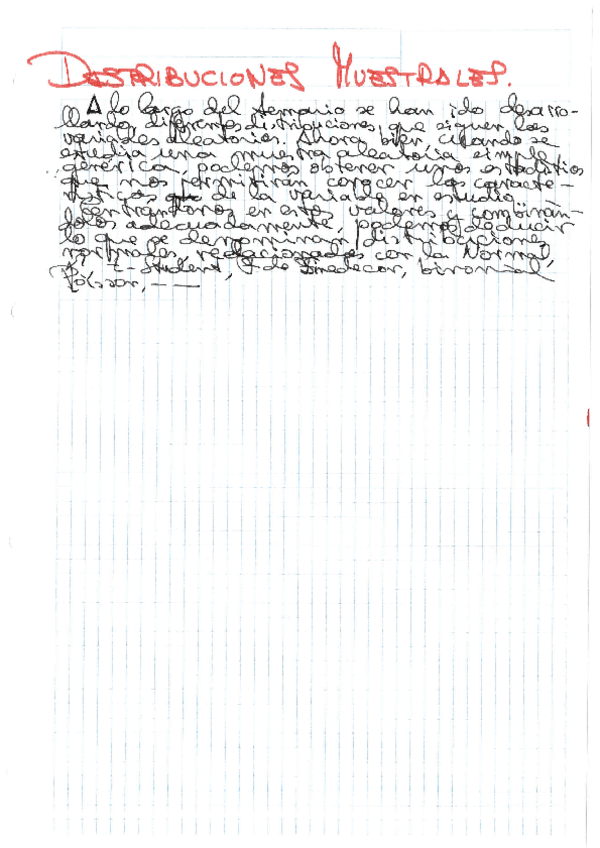 DISTRIBUCIONES MUESTRALES.
A lo largo del temario se han ido desarro-
llando diferentes distribuciones que siguen las
variables aleatorias. Ahora bien, cuando se
estudia una muestra aleatoria simple
genérica, podemos obtener unos estadísticos
que nos permitirán conocer las caracte-
rísticas de la variable en estudio.
Centrándonos en estos valores y combinán-
dolos adecuadamente, podemos deducir
lo que se denominan distribuciones
muestrales, relacionadas con la Normal,
t-Student, F de Snedecor, binomial,
Poisson, ...